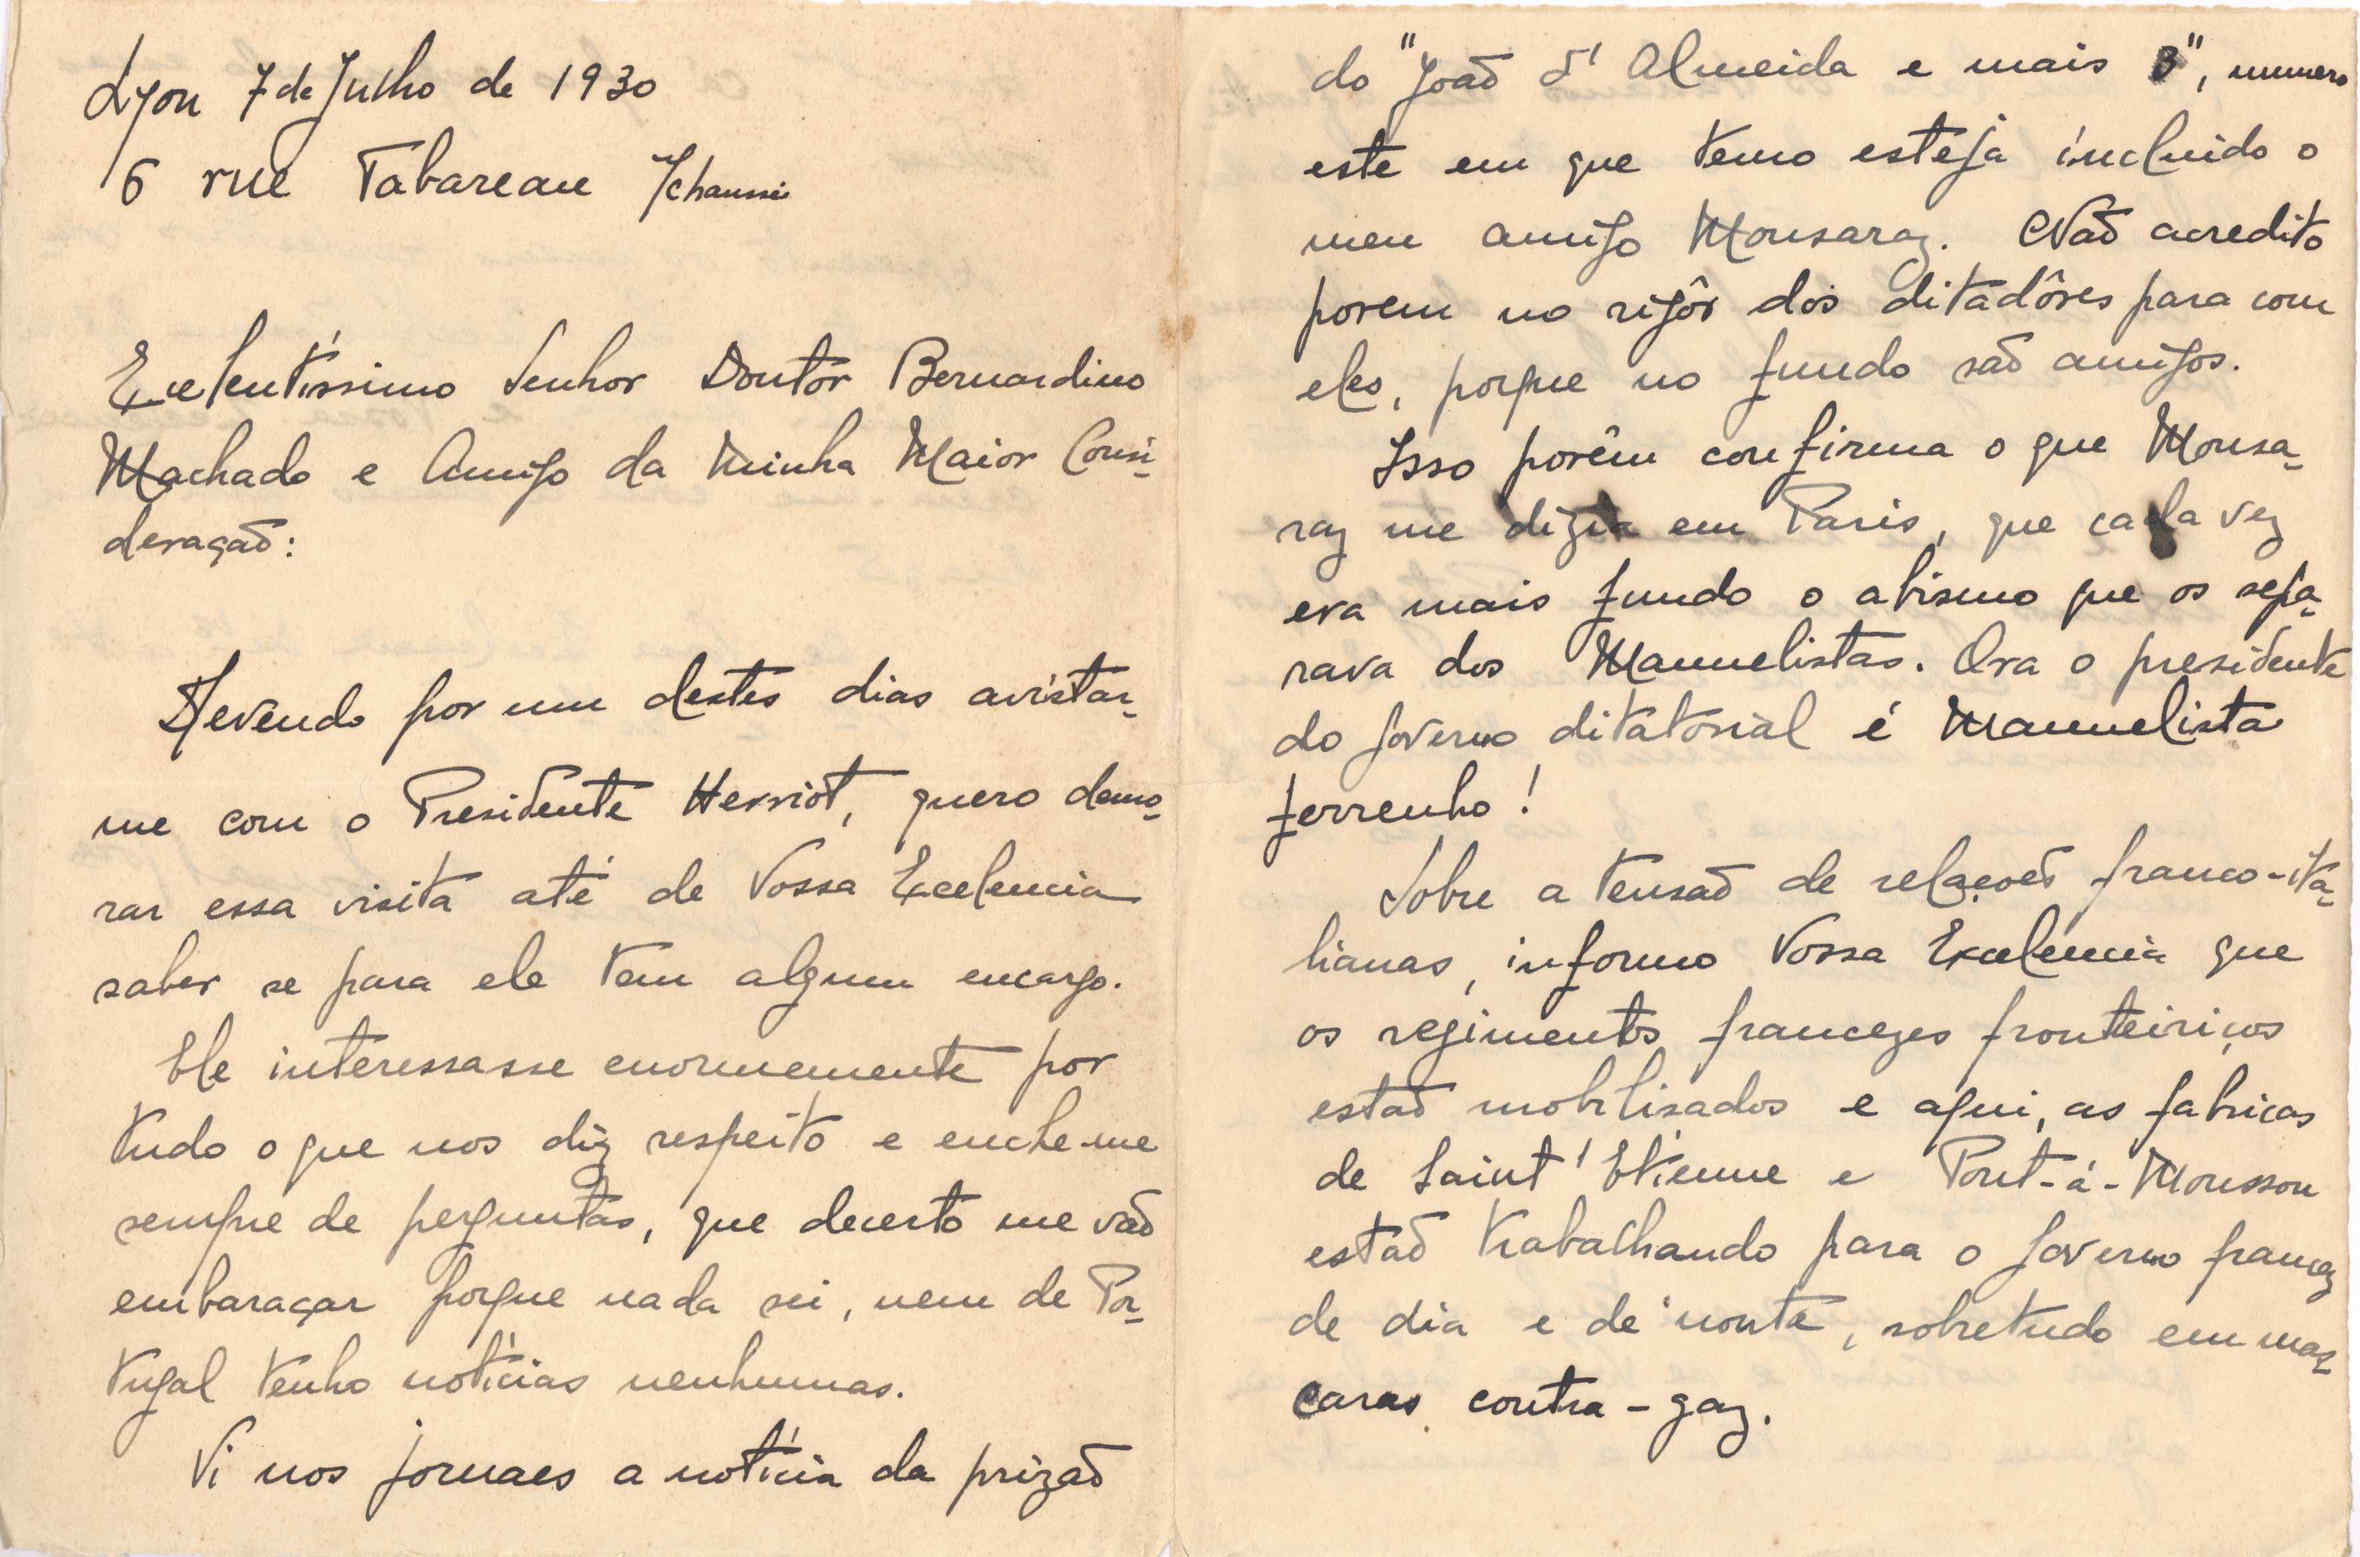 Lyon 7 de Julho de 1930
6 rue Tabareau
Excelentíssimo Senhor Doutôr Bernardino
Machado e Amigo da Minha Maior Consi-
deração:
Devendo por um destes dias avistar-
me com o Presidente Herriot, quero demo-
rar essa visita até de Vossa Excelencia
saber se para ele tem algum encargo.
Ele interessasse enormemente por
tudo o que nos diz respeito e enche-me
sempre de perguntas, que decerto me vão
embaraçar porque nada sei, nem de Por-
tugal tenho notícias nenhumas.
Vi nos jornaes a notícia da prizão
do "João d'Almeida e mais 3", numero
este em que temo esteja incluido o
meu amigo Monsaraz. Não acredito
porem no rigôr dos ditadôres para com
eles, porque no fundo são amigos.
Isso porêm confirma o que Monsa-
raz me dizia em Paris, que cada vez
era mais fundo o abismo que os sepa-
rava dos Manuelistas. Ora o presidente
do governo ditatorial é Manuelista
ferrenho!
Sobre a tensão de relações franco-ita-
lianas, informo Vossa Excelencia que
os regimentos francezes fronteiriços
estão mobilisados e aqui, as fabricas
de Saint'Etienne e Pont-á-Mousson
estão trabalhando para o governo francez
de dia e de noute, sobretudo em mas-
caras contra-gaz.